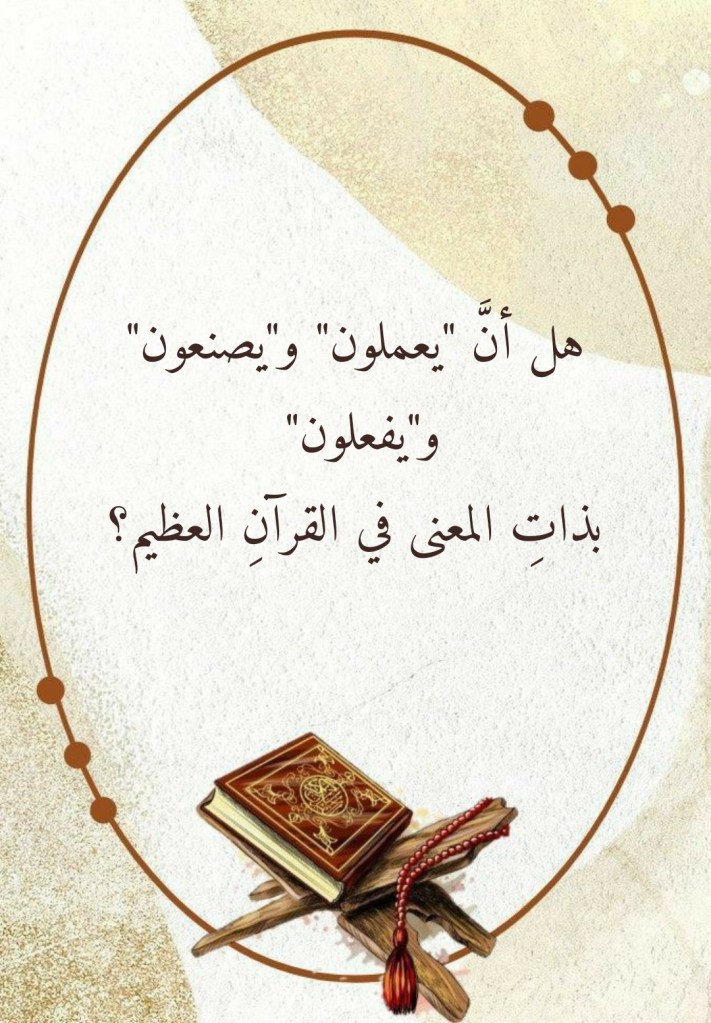 هل أنَّ "يعملون" و"يصنعون"
و"يفعلون"
بذاتِ المعنى في القرآنِ العظيم؟